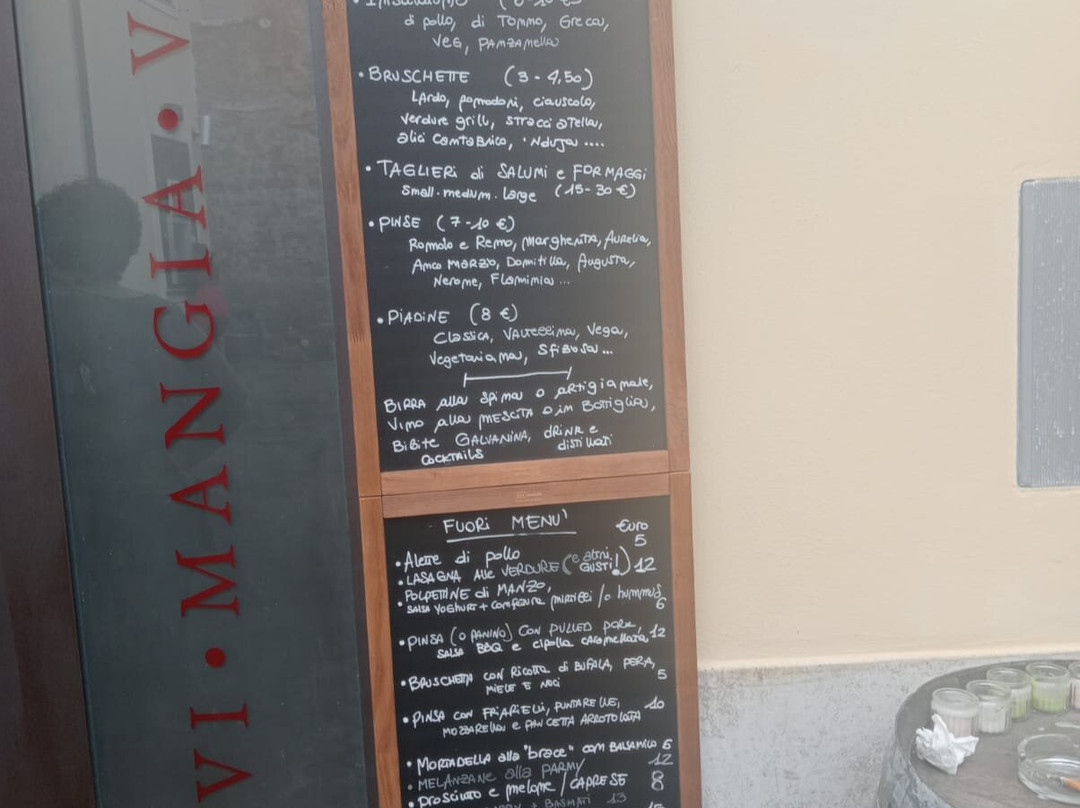 VI • MANGIA • V
di pollo, di Tonno, Greca,
Veg, PANZANella
• BRUSCHETTE (3 - 4,50)
LArdo, pomodori, ciauscolo,
Verdure grill, stracciATella,
alici CantaBrico, 'Nduja ....
• TAGLIERI di SALUMI e FORMAGGI
Small. medium. large (15-30 €)
• PINSE (7-10 €)
Romolo e Remo, MargheriTA, Aurelia,
Anco MARZIO, Domitilla, Augusta,
Nerone, Flaminia ...
• PIADINE (8 €)
Classica, VALTELLINA, Vega,
Vegetariana, Sfiziosa ...
BIRRA alla spina o artigianale,
Vino alla MESCITA o in Bottiglia,
BiBite GALVANINA, dRINK e
COCKTAILS distillati
FUORI MENU'
€uro
• Alette di pollo 5
• LASAGNA Alle VERDURE (e altri GUSTI!) 12
POLPETTINE di MANZO,
• SALSA YOGHURT + CONFETTURA MIRTILLI /o hummus 6
• PINSA (O PANINO) CON PULLED PORK, 12
SALSA BBQ e cipolla CARAMELLATA
• BRUSCHETTA CON RICOTTA di BUFALA, PERA, 5
MIELE E NOCI
• PINSA CON FRIARIELLI, PUNTARELLE, 10
MOZZARELLA e PANCETTA ARROTOLATA
• MORTADELLA alla "brace" CON BALSAMICO 6
• MELANZANE alla PARMY 12
• PROSCIUTTO e melone / CAPRESE 8
+ BASMATI 13